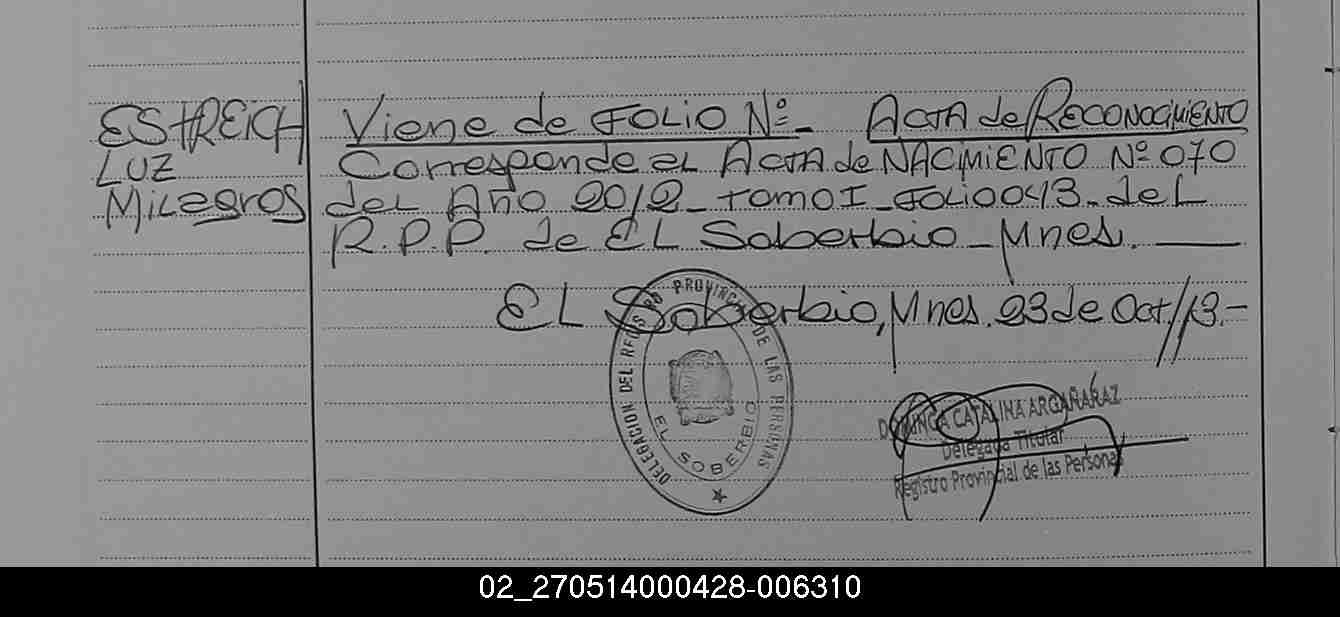 ESTREICH
LUZ
Milagros
Viene de FOLIO Nº- ACTA de RECONOCIMIENTO
Corresponde al ACTA de NACIMIENTO Nº 070
del Año 2012 - tomo I - FOLIO 0043 - del
R.P.P. de EL Soberbio - Mnes.
EL Soberbio, Mnes. 23 de Oct./13.-
DELEGACION DEL REGISTRO PROVINCIAL DE LAS PERSONAS
EL SOBERBIO
DOMINGA CATALINA ARGAÑARAZ
Delegada Titular
Registro Provincial de las Personas
02_270514000428-006310